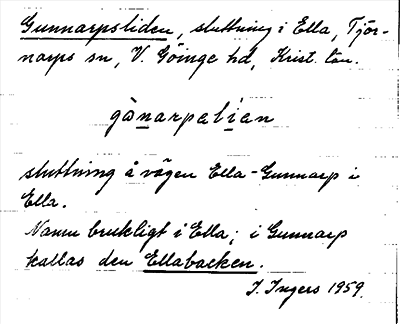 Gunnarpsliden, sluttning i Ella, Tjör-
narps sn, V. Göinge hd, Krist. län.
gònarpalian
sluttning å vägen Ella-Gunnarp i
Ella.
Namn brukligt i Ella; i Gunnarp
kallas den Ellabacken.
I. Ingers 1959.